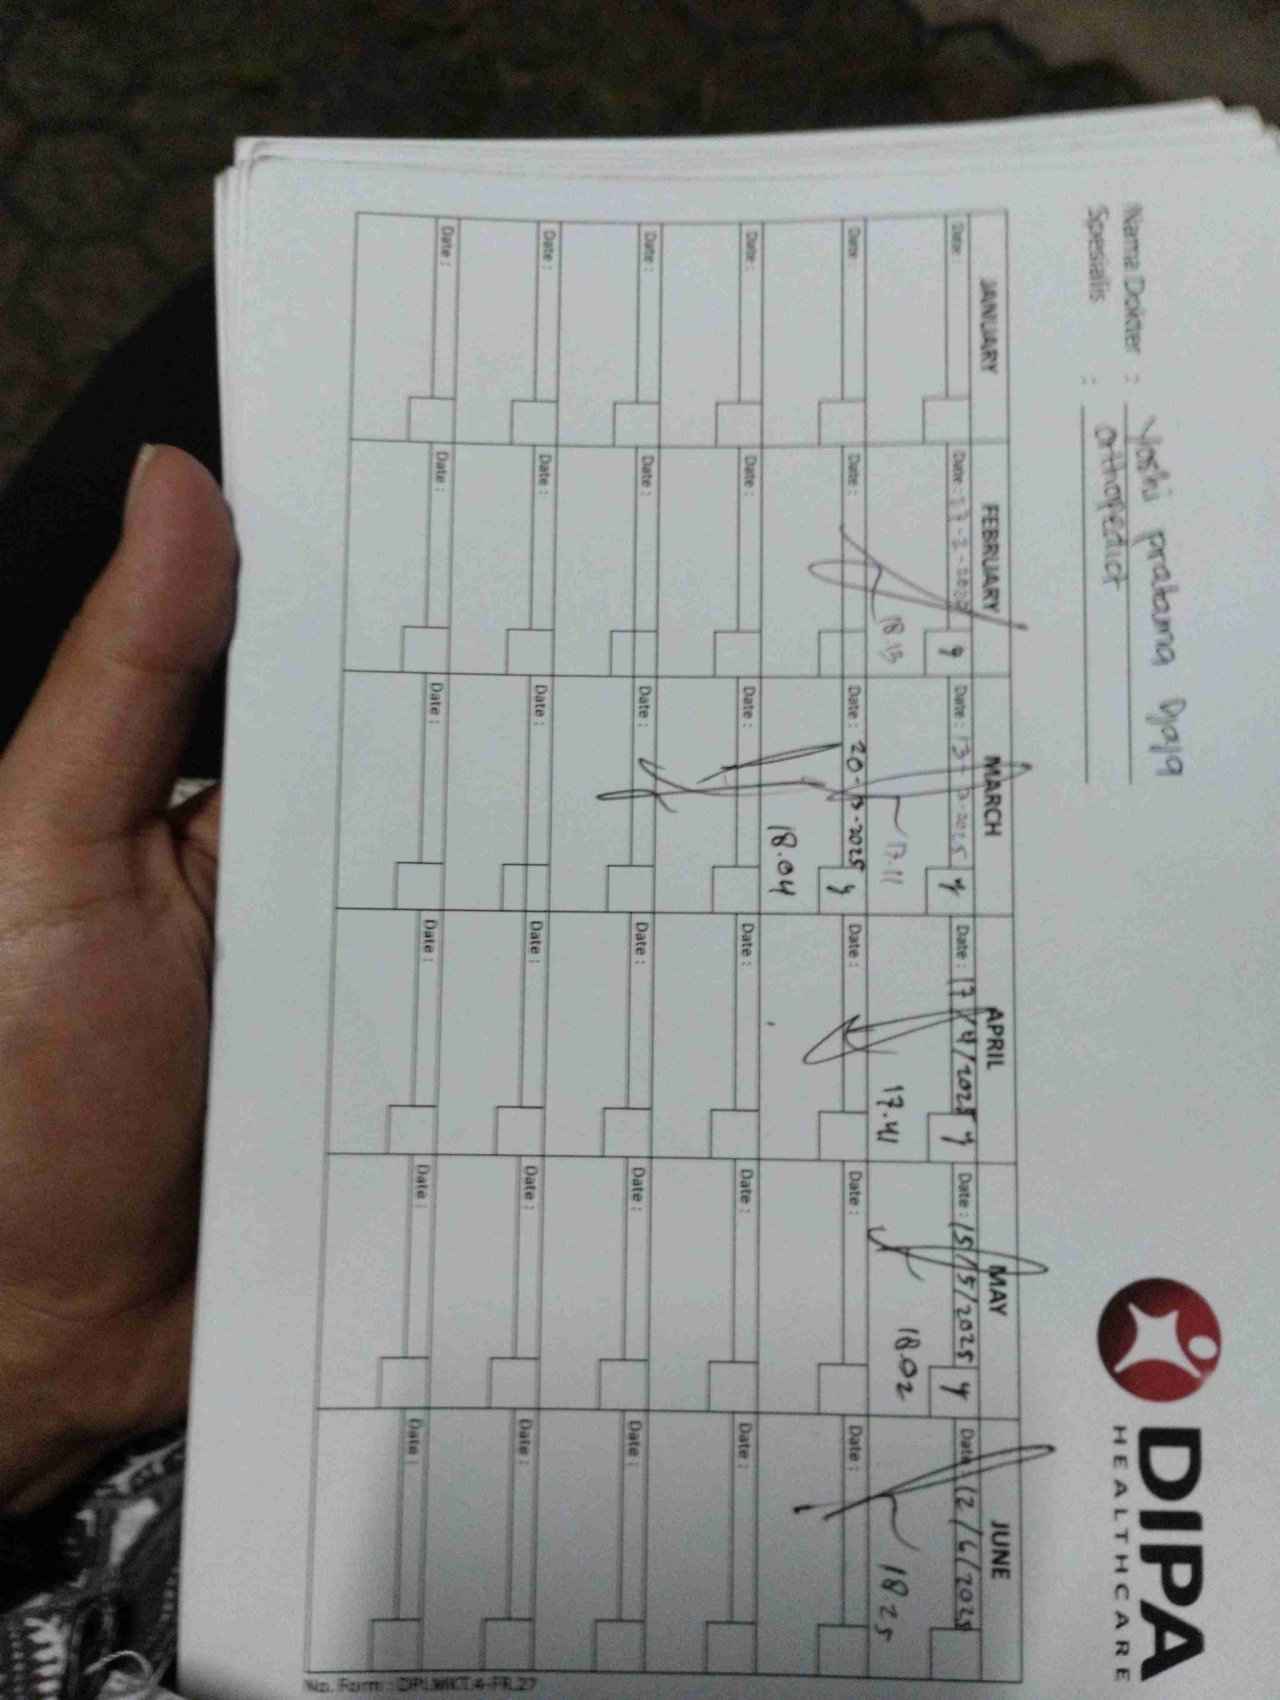 DIPA
HEALTHCARE
Nama Dokter : Yoshi pratama Djaja
Spesialis : orthopedict
JANUARY FEBRUARY MARCH APRIL MAY JUNE
Date: Date: Date: 13- 3-2025 y Date: 17/4/2025 y Date: 15/5/2025 y Date: 12/6/2025
18.15 17.11 17.41 18.02 18 25
Date: Date: Date: 20-3-2025 y Date: Date: Date:
18.04
Date: Date: Date: Date: Date: Date:
Date: Date: Date: Date: Date: Date:
Date: Date: Date: Date: Date: Date:
Date: Date: Date: Date: Date: Date:
No. Form :